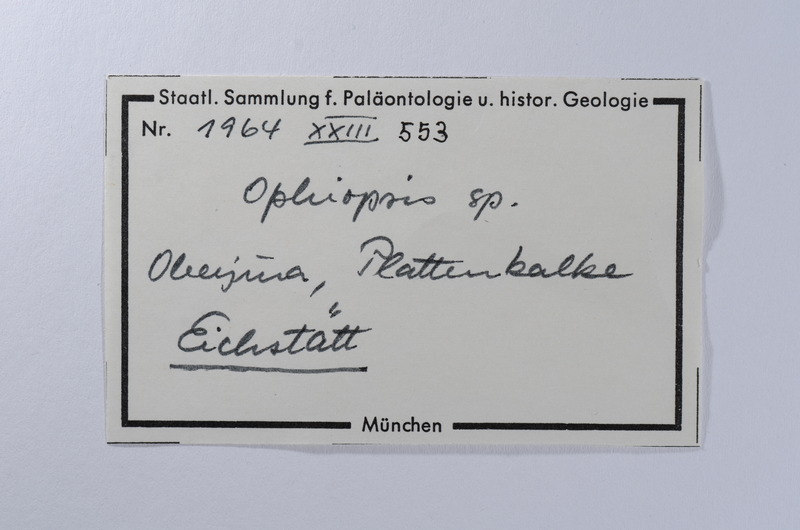 Staatl. Sammlung f. Paläontologie u. histor. Geologie
Nr. 1964 XXIII 553
Ophiopsis sp.
Oberjura, Plattenkalke
Eichstätt
München